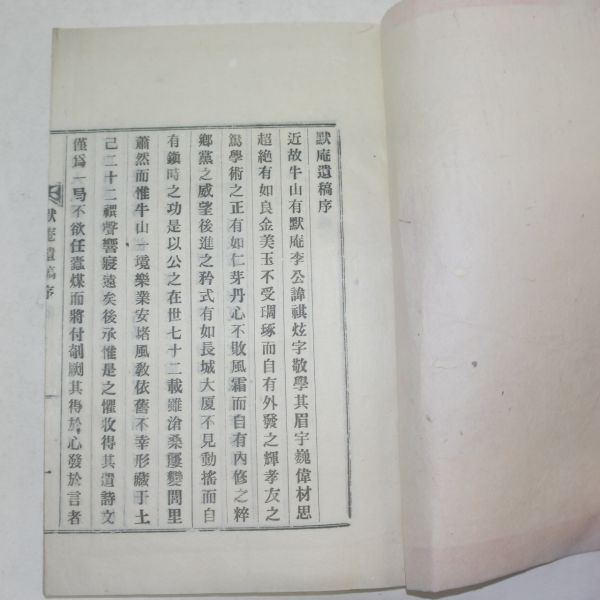 默庵遺稿序
近故牛山有默庵李公諱祺炫字敬學其眉宇巍偉材思
超絶有如良金美玉不受琱琢而自有外發之輝孝友之
篤學術之正有如仁芽丹心不敗風霜而自有內修之粹
鄕黨之威望後進之矜式有如長城大厦不見動搖而自
有鎭時之功是以公之在世七十二載雖滄桑屢變閭里
蕭然而惟牛山一境樂業安堵風敎依舊不幸形藏于土
已二十二禩聲響寢遠矣後承惟是之懼收得其遺詩文
僅爲一局不欲任蠹煤而將付剞劂其得於心發於言者
默庵遺稿序
一